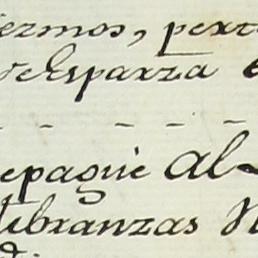 iezmos, pert
de Esparza e
- - - - -
epaguè al
libranzas N